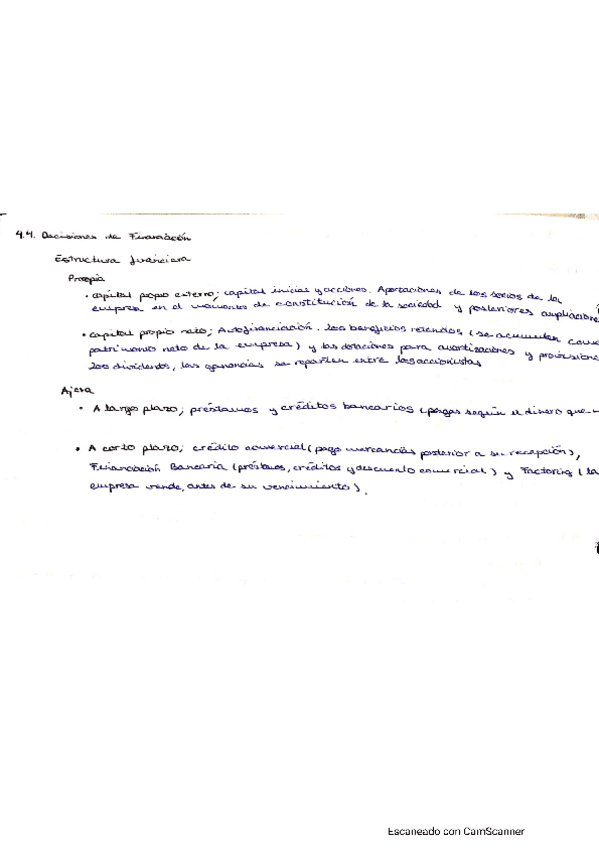 4.4. Decisiones de Financiación
Estructura financiera
Propia
• capital propio externo; capital inicial y acciones. Aportaciones de los socios de la
empresa en el momento de constitución de la sociedad y posteriores ampliacione
• capital propio neto; Autofinanciación. Los beneficios retenidos (se acumulan como
patrimonio neto de la empresa) y las dotaciones para amortizaciones y provisione
Los dividendos, las ganancias se reparten entre los accionistas
Ajena
• A largo plazo; préstamos y créditos bancarios (pagas según el dinero que
• A corto plazo; crédito comercial (pago mercancías posterior a su recepción),
Financiación Bancaria (préstamos, créditos y descuento comercial) y Factoring (la
empresa vende, antes de su vencimiento).
Escaneado con CamScanner